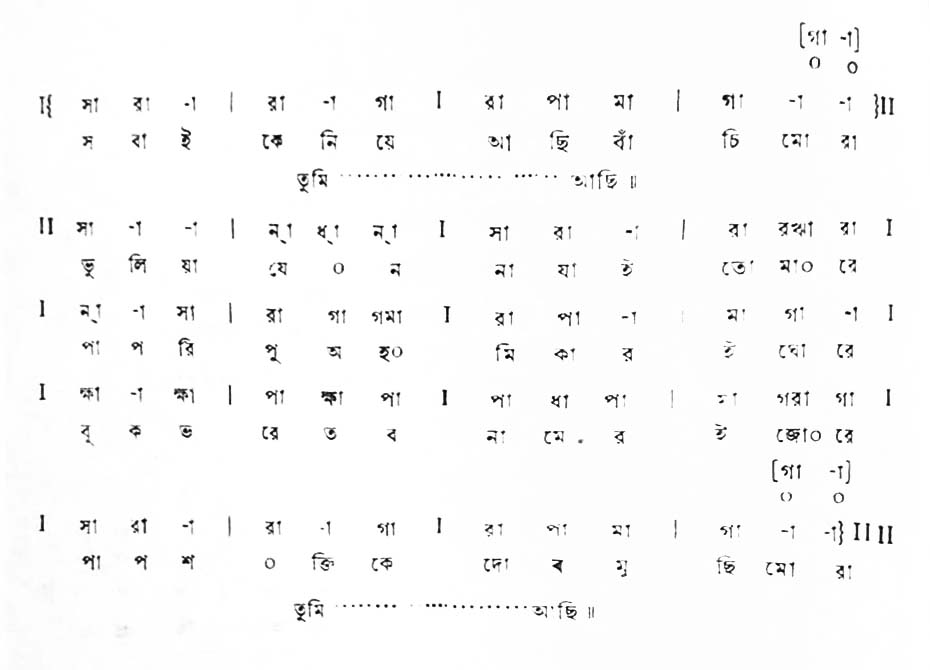 [গা -া]
০ ০
I{ সা রা -া | রা -া গা I রা পা মা | গা -া -া }II
স বা ই কে নি য়ে আ ছি বাঁ চি মো রা
তুমি ··················· আছি ॥
II সা -া -া | ন্‌া ধ্‌া ন্‌া I সা রা -া | রা রঋা রা I
ভু লি য়া যে ০ ন না যা ই তো মা০ রে
I ন্‌া -া সা | রা গা গমা I রা পা -া | মা গা -া I
পা প রি পু অ হ০ মি কা র ই ঘো রে
I ক্ষা -া ক্ষা | পা ক্ষা পা I পা ধা পা | মা গরা গা I
বু ক ভ রে ত ব না মে র ই জো০ রে
[গা -া]
০ ০
I সা রা -া | রা -া গা I রা পা মা | গা -া -া} II II
পা প শ ০ ক্তি কে দো ব মু ছি মো রা
তুমি ··················· আছি ॥